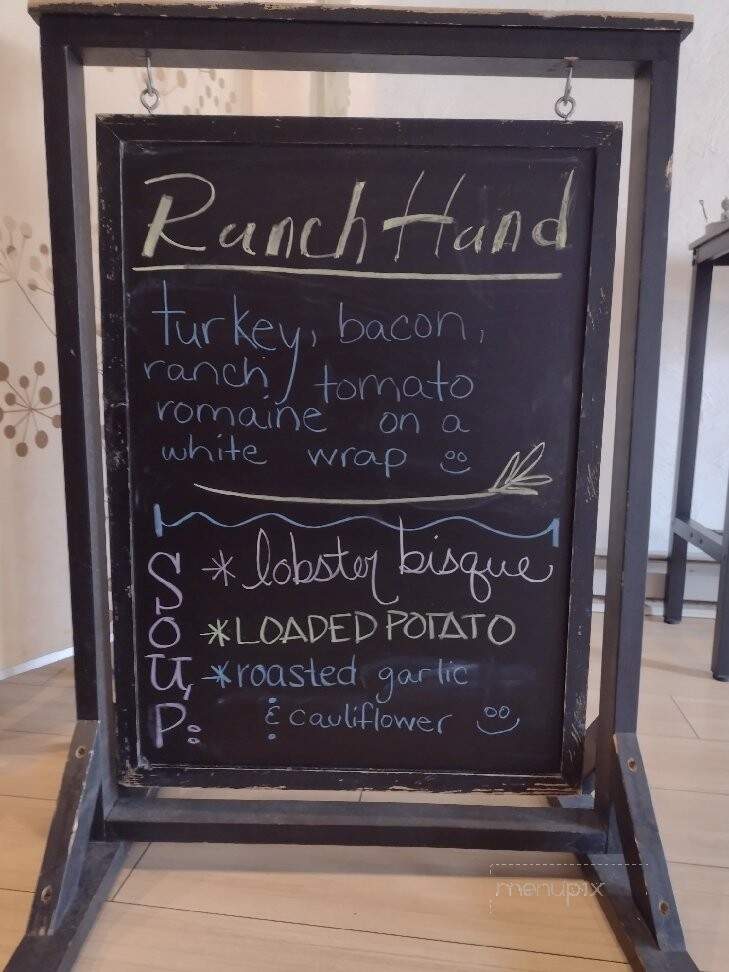 Ranch Hand
turkey, bacon,
ranch, tomato
romaine on a
white wrap
SOUP:
*lobster bisque
*LOADED POTATO
*roasted garlic
& cauliflower
menupix